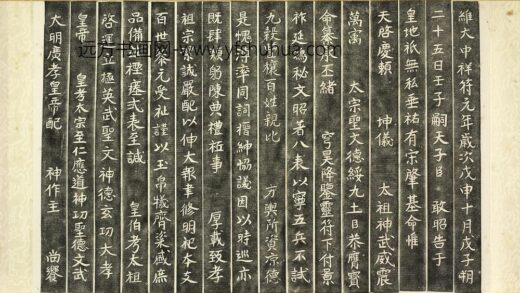 維大中祥符元年歲次戊申十月戊子朔
二十五日壬子嗣天子臣 敢昭告于
皇地祇無私垂祐有宗肇基命惟
天啓慶賴 坤儀 太祖神武威震
萬寓 太宗聖文德綏九土臣恭膺寶
命纂承丕緒 穹昊降鑒靈符下付景
祚延鴻祕文昭著八表以寧五兵不試
九穀豐穰百姓親比 方輿所資涼德
是愧溥率同詞搢紳協議因以時巡亦
既肆類躬陳典禮祗事 厚載致孝
祖宗潔誠嚴配以伸大報聿修明祀本支
百世黎元受祉謹以玉帛犧齊粢盛庶
品備茲禋瘞式表至誠 皇伯考太祖
啓運立極英武聖文神德玄功大孝
皇帝 皇考太宗至仁應道神功聖德文武
大明廣孝皇帝配 神作主 尚饗